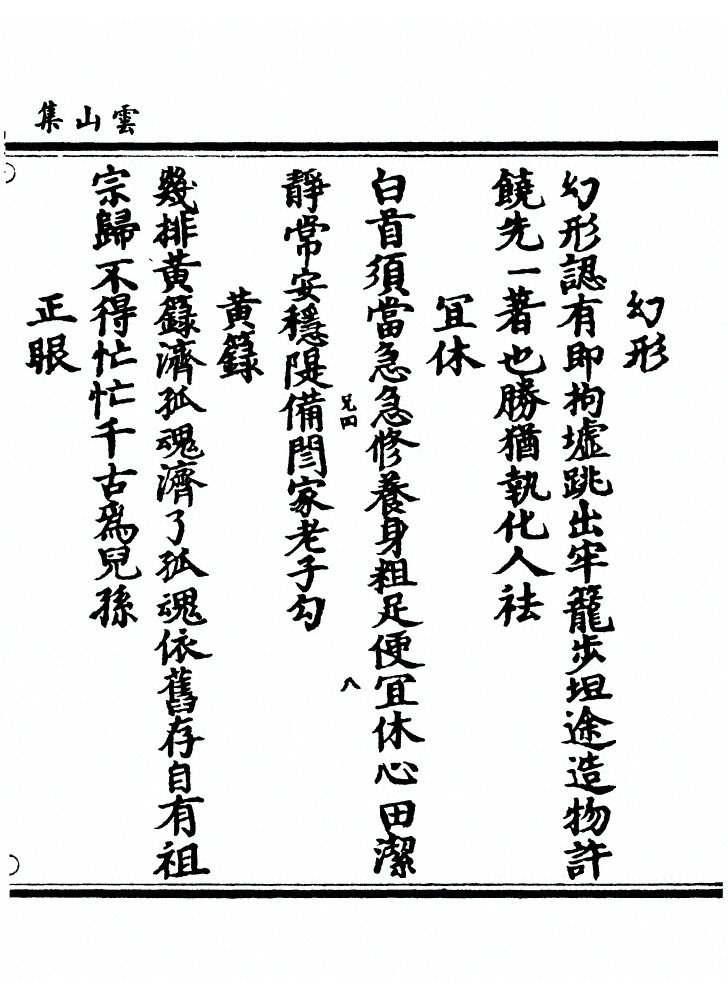 雲山集
幻形
幻形認有即拘墟跳出牢籠步坦途造物許
饒先一著也勝猶執化人袪
冝休
白首須當急急修養身粗足便冝休心田潔
靜常安穩隄備閻家老子勾
兄四
八
黄籙
幾排黄籙濟孤魂濟了孤魂依舊存自有祖
宗歸不得忙忙千古爲兒孫
正眼